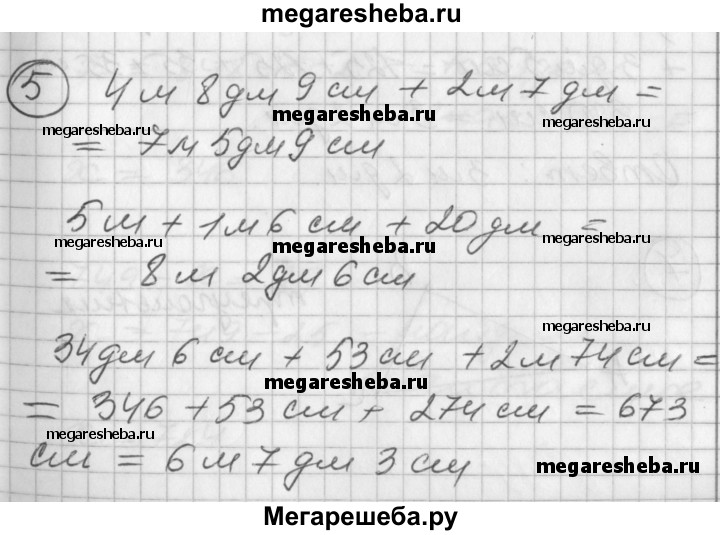 megaresheba.ru
5 4 м 8 дм 9 см + 2 м 7 дм =
megaresheba.ru megaresheba.ru megaresheba.ru
= 7 м 5 дм 9 см
5 м + 1 м 6 см + 20 дм =
megaresheba.ru megaresheba.ru megaresheba.ru
= 8 м 2 дм 6 см
megaresheba.ru
34 дм 6 см + 53 см + 2 м 74 см =
megaresheba.ru
= 346 + 53 см + 274 см = 673
megaresheba.ru
см = 6 м 7 дм 3 см
megaresheba.ru
Мегарешеба.ру